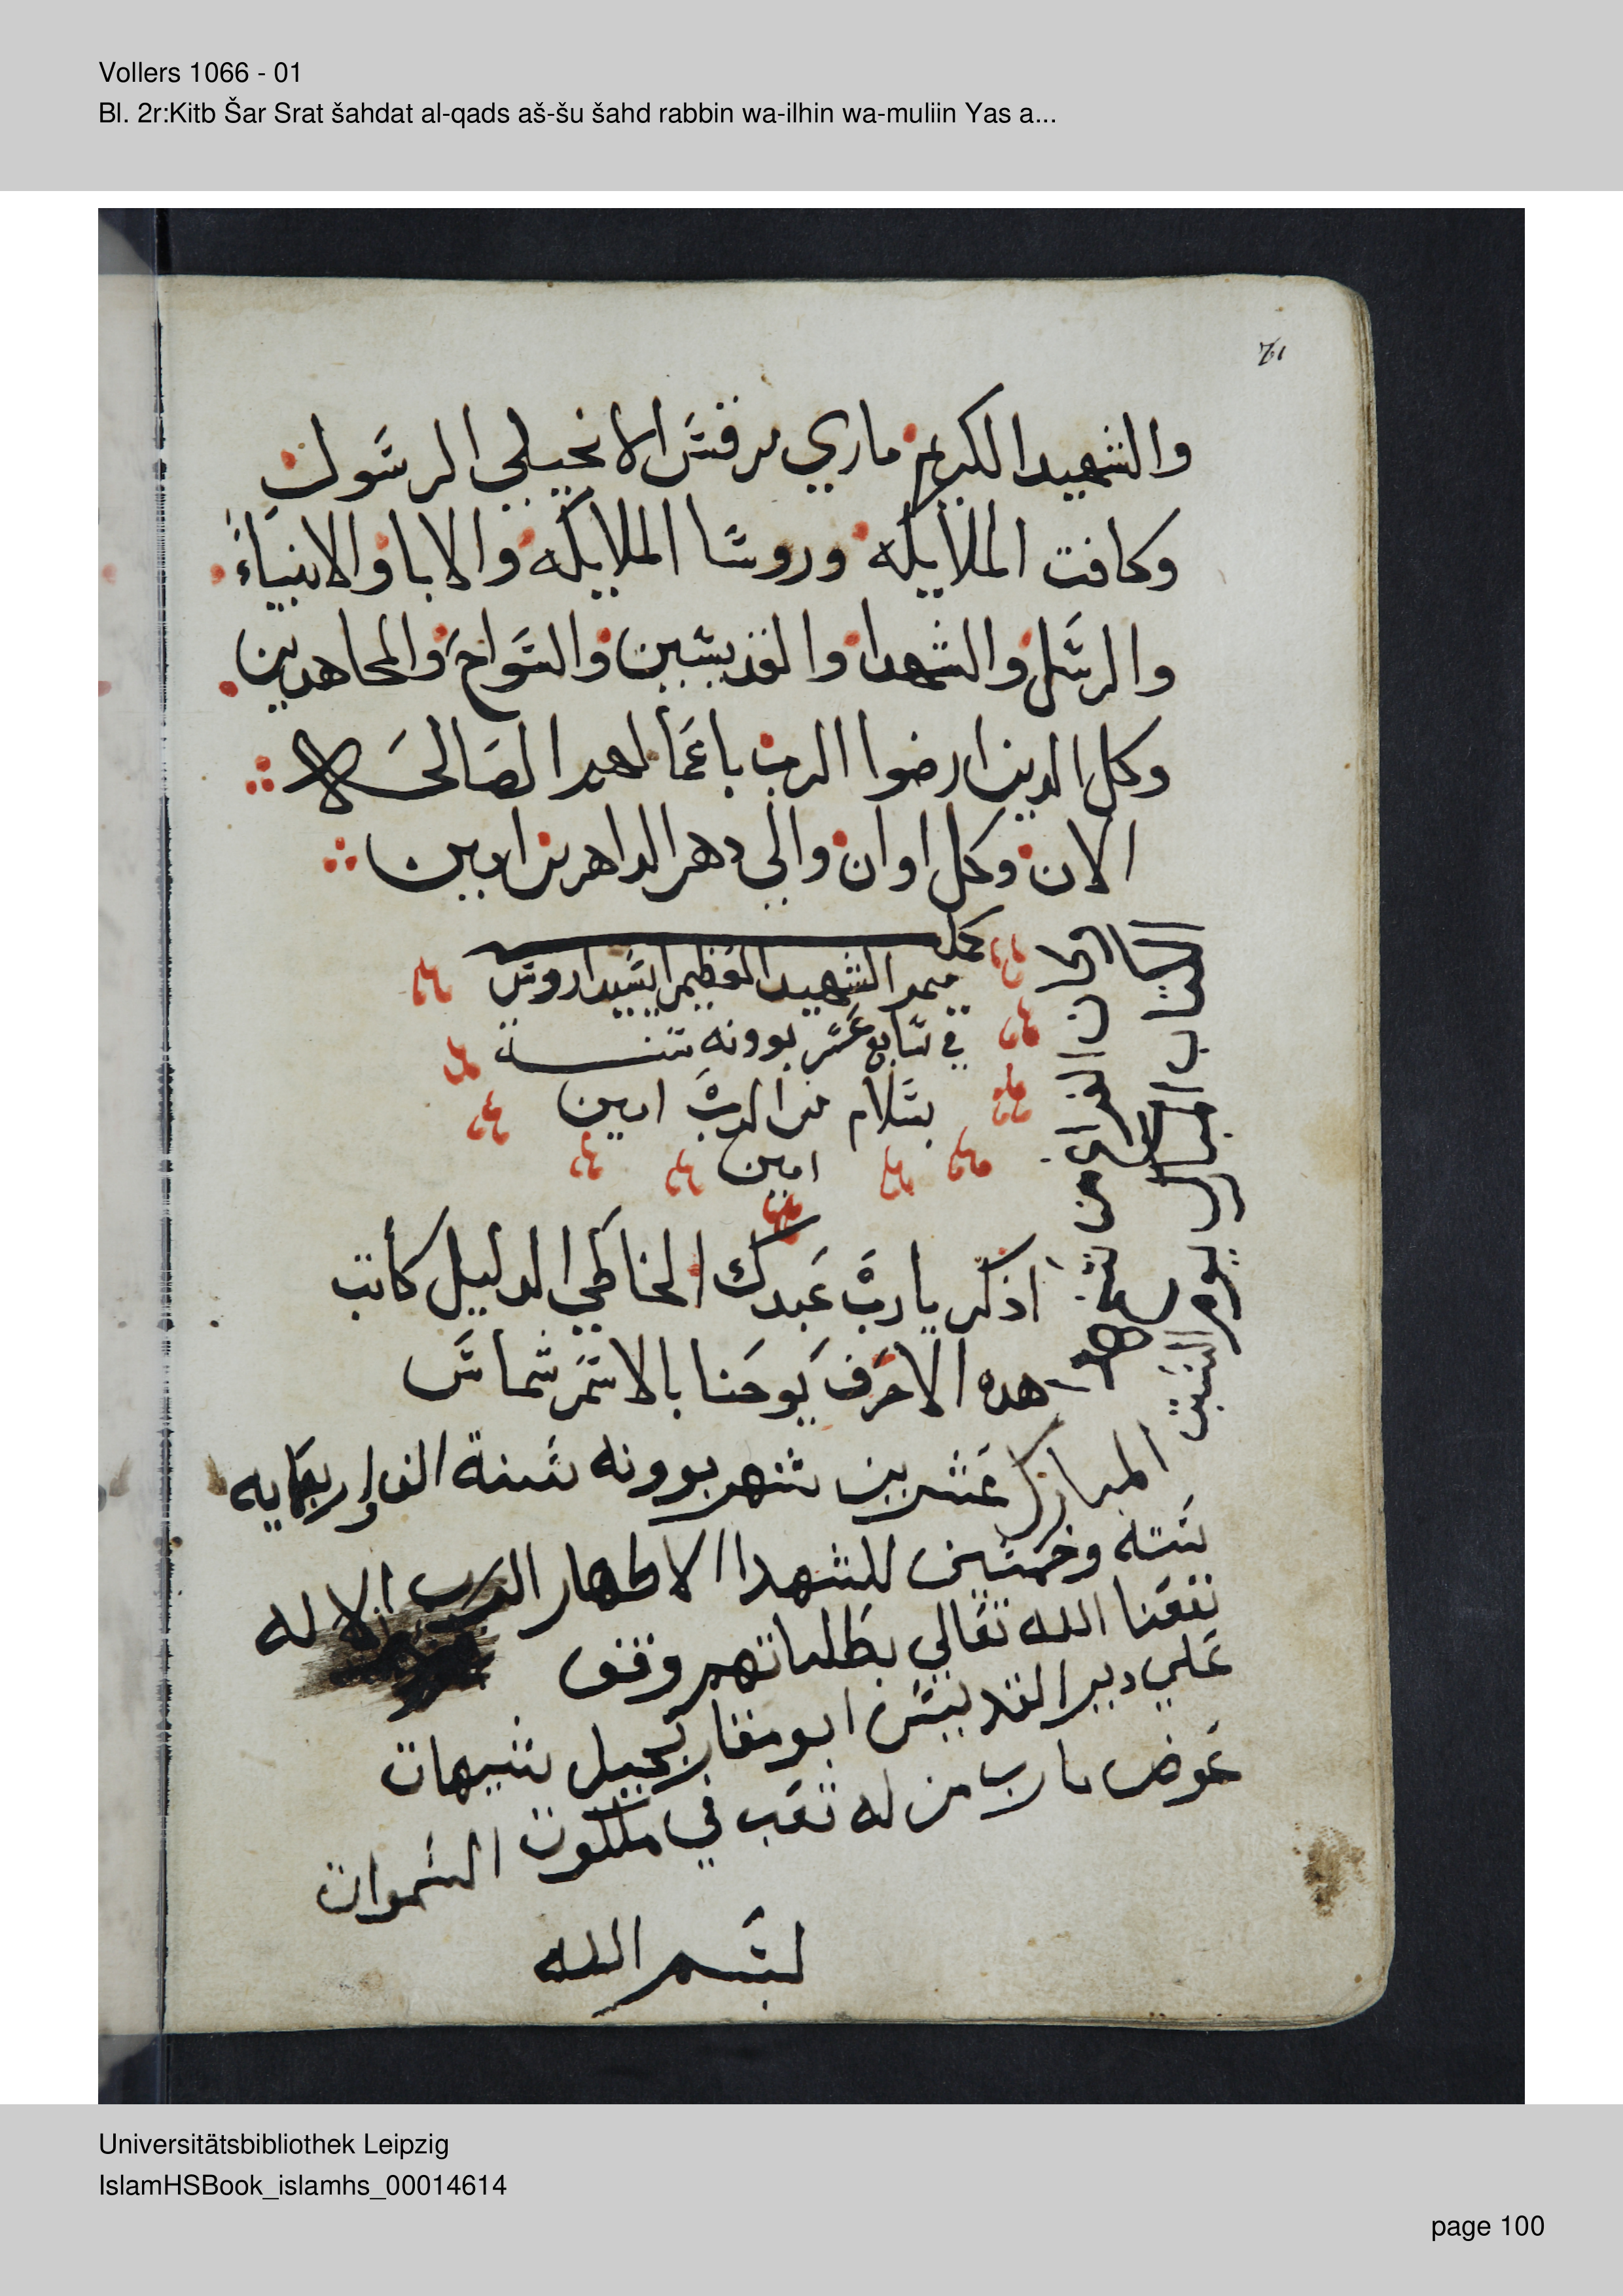 Vollers 1066 - 01
Bl. 2r:Kitb Šar Srat šahdat al-qads aš-šu šahd rabbin wa-ilhin wa-muliin Yas a...
والشهيد الكريم ماري مرقس الانجيلي الرسول
وكافت الملايكه وروسا الملايكه والابا والانبياء
والرسل والشهدا والقديسين والسواح والمجاهدين
وكل الدين ارضوا الرب باعمالهم الصالحه
الان وكل اوان والي دهر الداهرين امين
كمل
ميمر الشهيد العظيم
في سابع عشر بوونه سنة
بسلام من الرب امين
امين
اذكر يارب عبدك الخاطي الدليل كاتب
هده الاحرف يوحنا بالاسم شماس
المبارك عشرين شهر بوونه سنة الف اربعمايه
سته وخمسين للشهدا الاطهار الاله
نفعنا الله تعالي بطلباتهم وقف
علي دير القديس ابو مقار بجبل شيهات
عوض يارب من له تعب في ملكوت السموات
بسم الله
Universitätsbibliothek Leipzig
IslamHSBook_islamhs_00014614
page 100